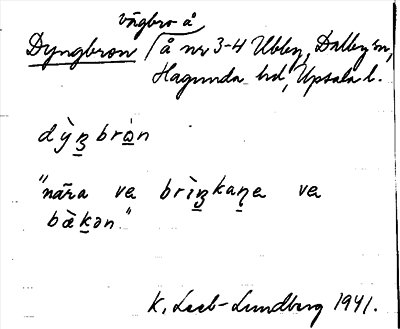 vägbro å
Dyngbron / å nr 3-4 Ubby, Dalby sn,
Hagunda hd, Upsala l.
dỳ̖ŋbro̖n
"nāra ve brìŋkaṇe ve
bæ̀kən"
K. Leeb-Lundberg 1941.